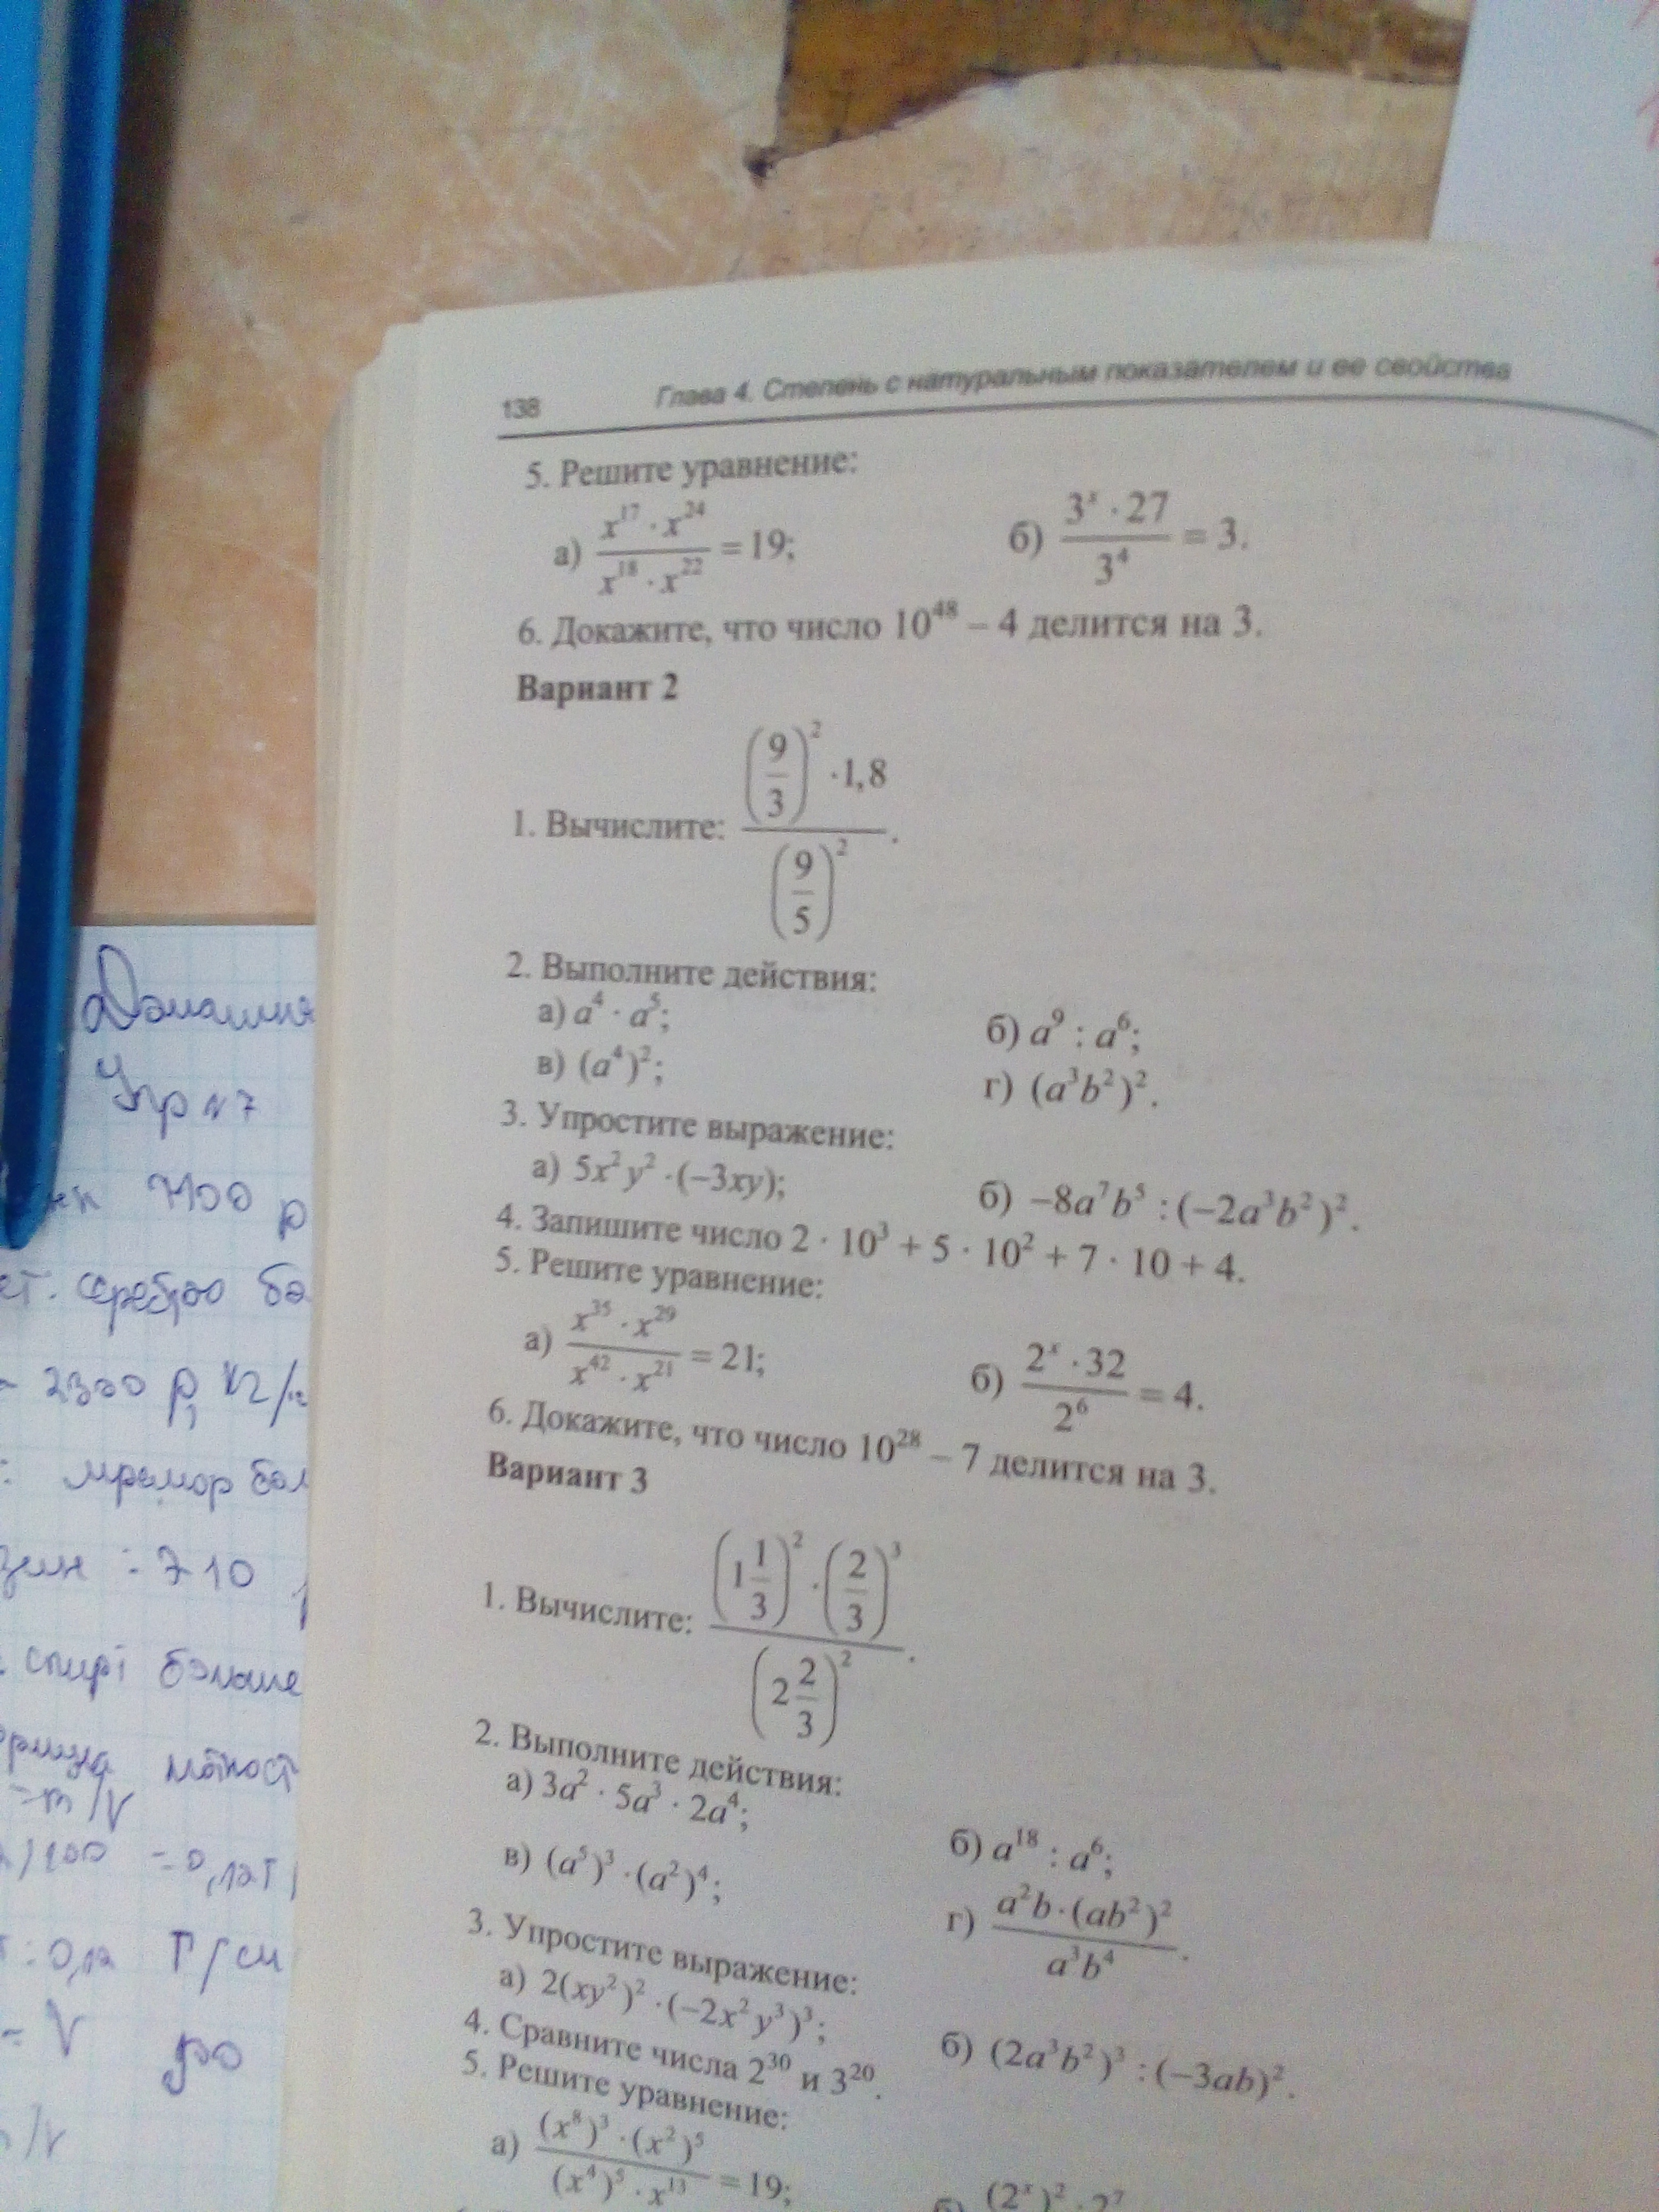 138 Глава 4. Степень с натуральным показателем и ее свойства
5. Решите уравнение:
а) (x^17 · x^24)/(x^18 · x^22) = 19; б) (3^x · 27)/3^4 = 3.
6. Докажите, что число 10^48 – 4 делится на 3.
Вариант 2
1. Вычислите: ((9/3)^2 · 1,8)/(9/5)^2.
2. Выполните действия:
а) a^4 · a^5; б) a^9 : a^6;
в) (a^4)^2; г) (a^3b^2)^2.
3. Упростите выражение:
а) 5x^2y^2 · (–3xy); б) –8a^7b^5 : (–2a^3b^2)^2.
4. Запишите число 2 · 10^3 + 5 · 10^2 + 7 · 10 + 4.
5. Решите уравнение:
а) (x^35 · x^29)/(x^42 · x^21) = 21; б) (2^x · 32)/2^6 = 4.
6. Докажите, что число 10^28 – 7 делится на 3.
Вариант 3
1. Вычислите: ((1 1/3)^2 · (2/3)^3)/(2 2/3)^2.
2. Выполните действия:
а) 3a^2 · 5a^3 · 2a^4; б) a^18 : a^6;
в) (a^5)^3 · (a^2)^4; г) (a^2b · (ab^2)^2)/(a^3b^4).
3. Упростите выражение:
а) 2(xy^2)^2 · (–2x^2y^3)^3; б) (2a^3b^2)^3 : (–3ab)^2.
4. Сравните числа 2^30 и 3^20.
5. Решите уравнение:
а) ((x^8)^3 · (x^2)^5)/((x^4)^5 · x^13) = 19; б) (2^x)^2 · 2^7
Упр N7
7100 р
серебро
2300 р,
мрамор
710
спирт больше
= m/V